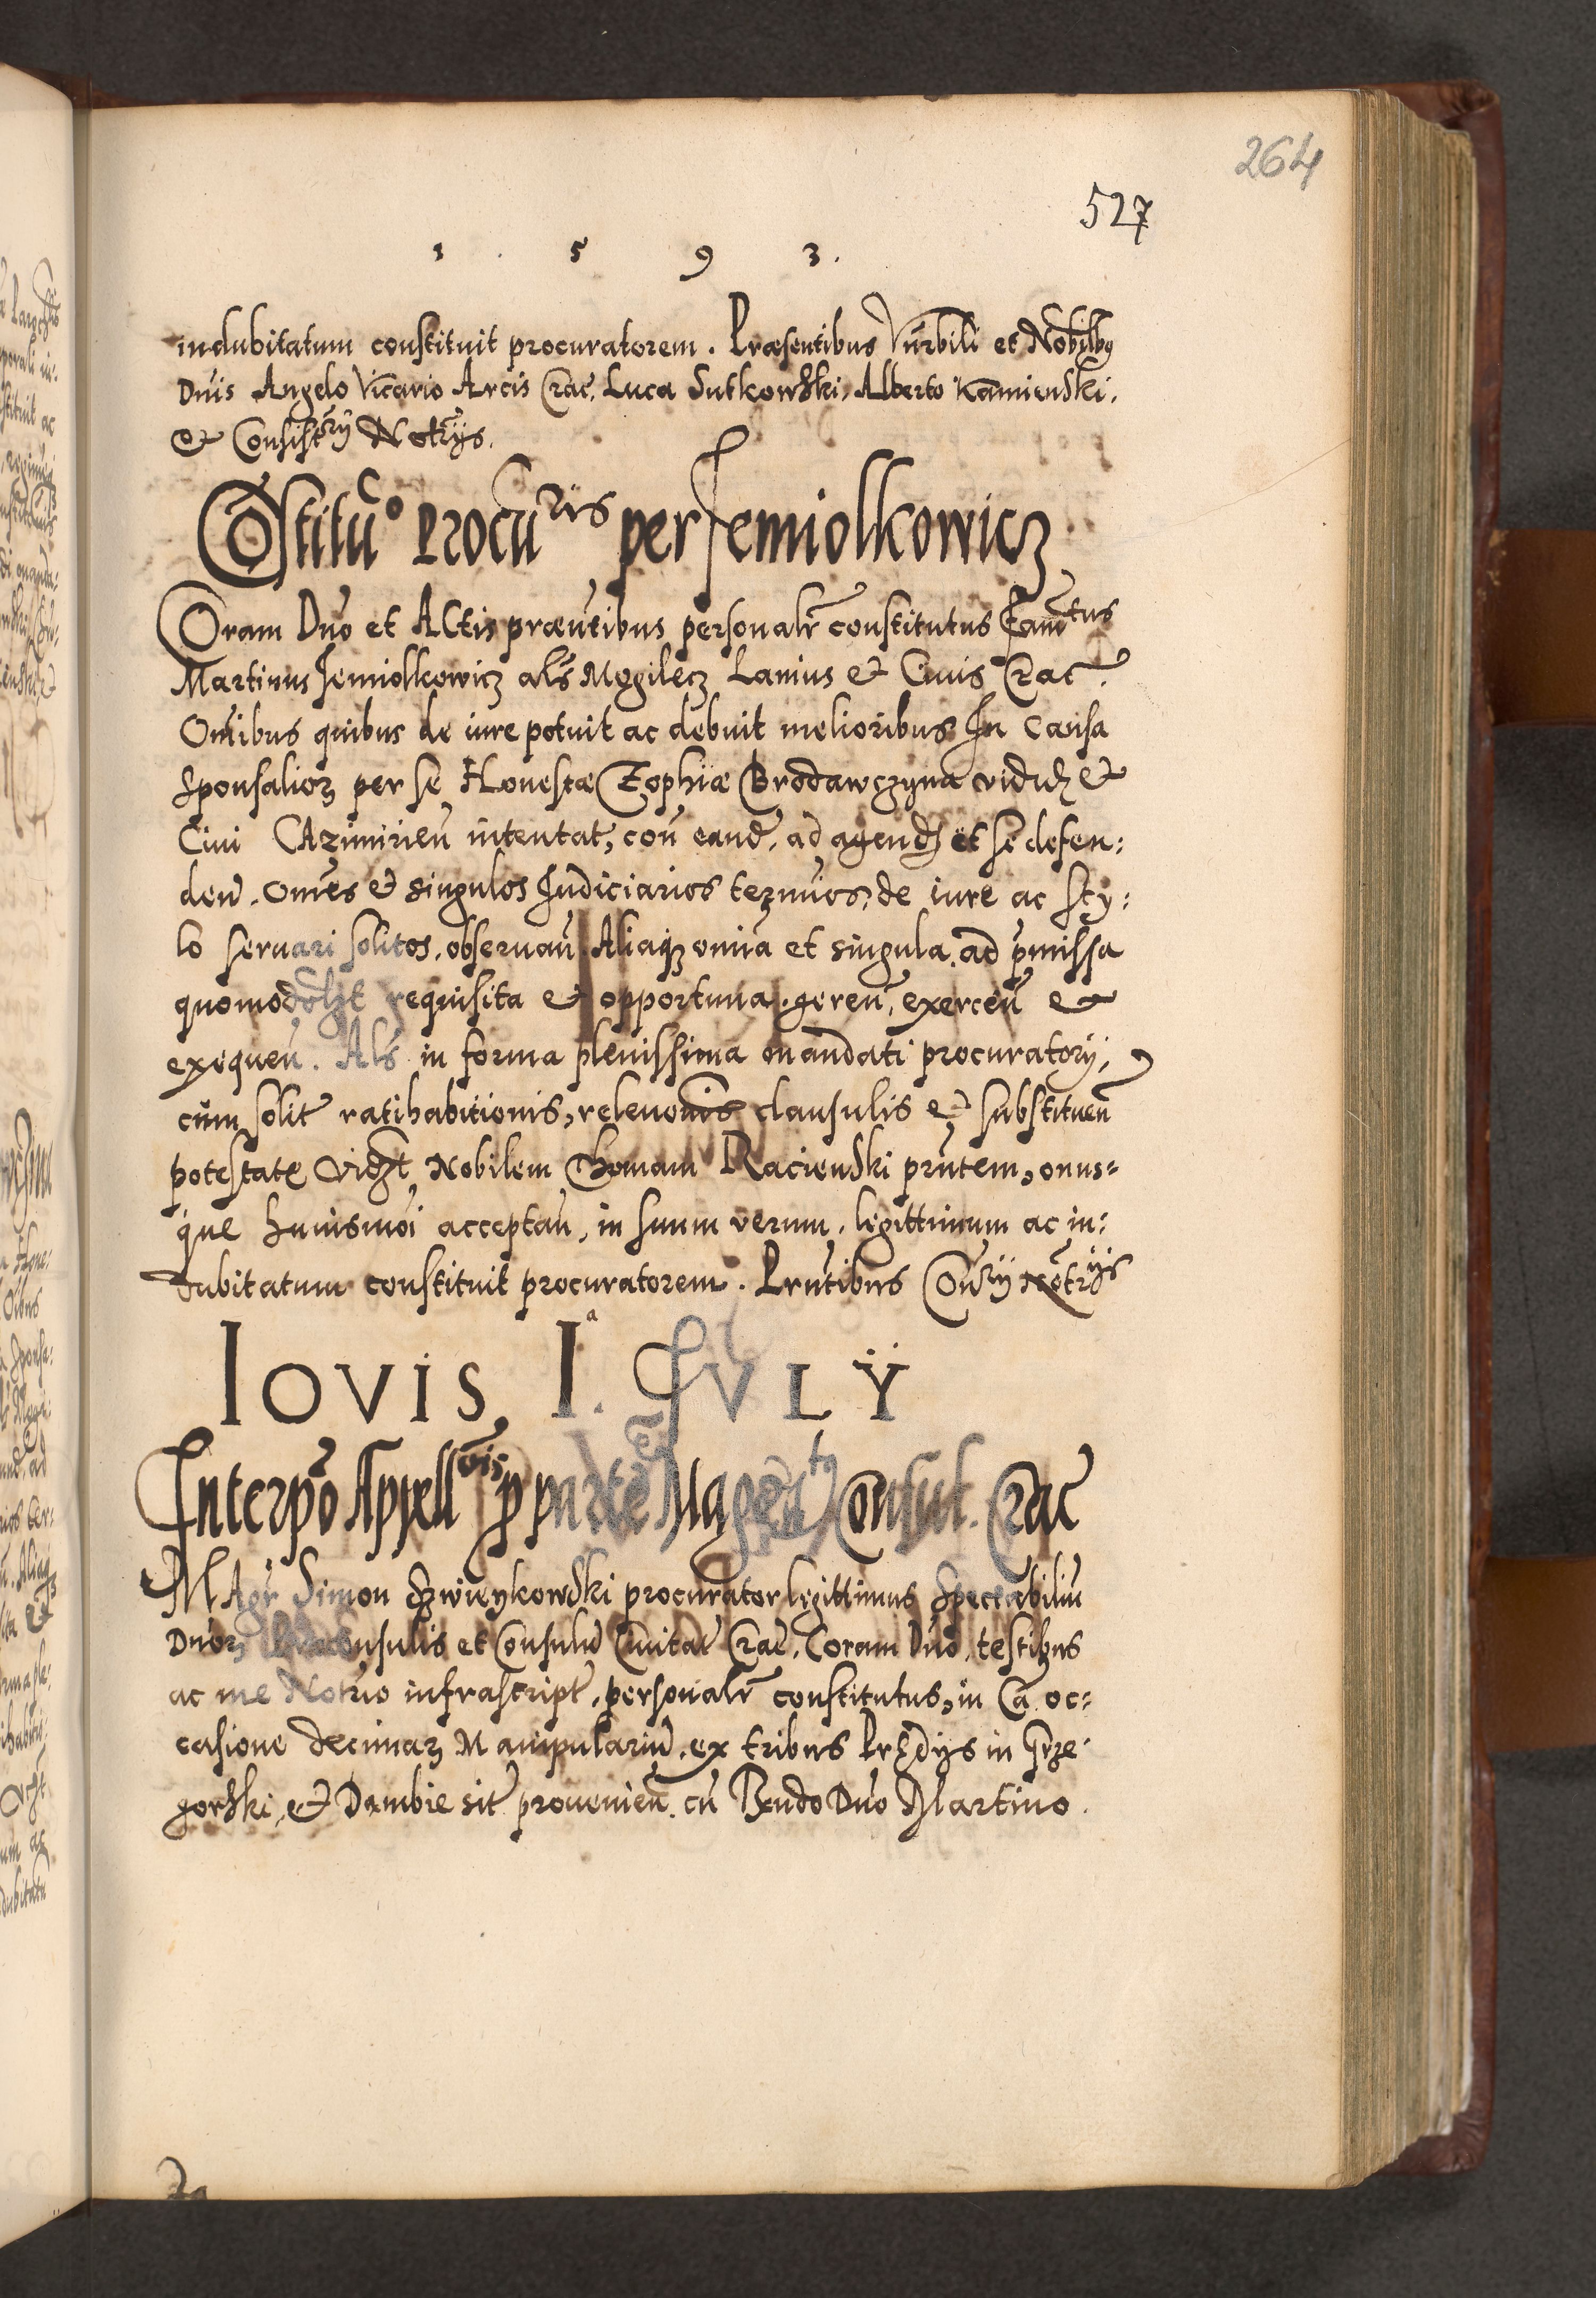 264
527
1 . 5 9 3 .
indubitatum constituit procuratorem . Præsentibus Vnrbili et Nobilbq
Dnis Angelo Vicario Arcis Crac. Luca Sutkowski, Alberto Kamienski.
et Consistrÿ Notrÿs.
Cōstitúo Procúris per Jemiolkowicz
COram Dno et ACtis præntibus personalr constitutus Famtus
Martinus Jemiolkowicz als Mogilecz Lanius et Ciuis Crac.
Omibus quibus de iure potuit ac debuit melioribus In causa
Sponsalioꝝ per se Honestæ Zophiæ Brodawczyna vidu et
Ciui CAzimirien intentat, con eand, ad agend et se defen:
den. omes et singulos Judiciarios termios, de iure ac sty:
lo seruari solitos, obseruan. Aliaqꝫ omia et singula, ad pmissa
quomodolzt requisita et opportuna, geren, exercen et
exequen. Als in forma plenissima mandati procuratorÿ,
cum solit ratihabitionis, releuonis clausulis et substituen
potestate Vidzt Nobilem Thomam Racienski prntem, onus=
que huiusmoi acceptan, in suum verum, legittimum ac in:
dubitatum constituit procuratorem. Prntibus Consrÿ Notrÿs
IOVIS Iᵃ. JVLŸ
Interpo Appellois p parte Consul. Crac
MAgr Simon procurator legittimus Spectabiliu
Dnoꝝ et Consulu Ciuitat Crac. Coram Dno, testibus
ac me Notrio infrascript, personalr constitutus, in Ca oc=
casione decimaꝝ Manipulariu, ex tribus Prędÿs in Grze=
gorski, et Dambie sit prouenien. cu Rendo Dno Martino.